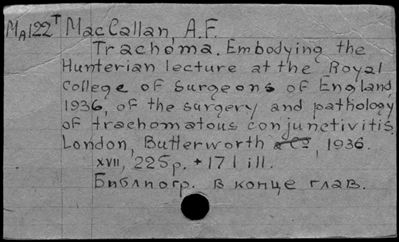 MA122T MacCallan, A.F.
Trachoma. Embodying the
Hunterian lecture at the Royal
College of Surgeons of England,
1936, of the surgery and pathology
of trachomatous conjunctivitis.
London, Butterworth & Co, 1936.
XVII, 225p. + 171 ill.
Библиогр. в конце глав.